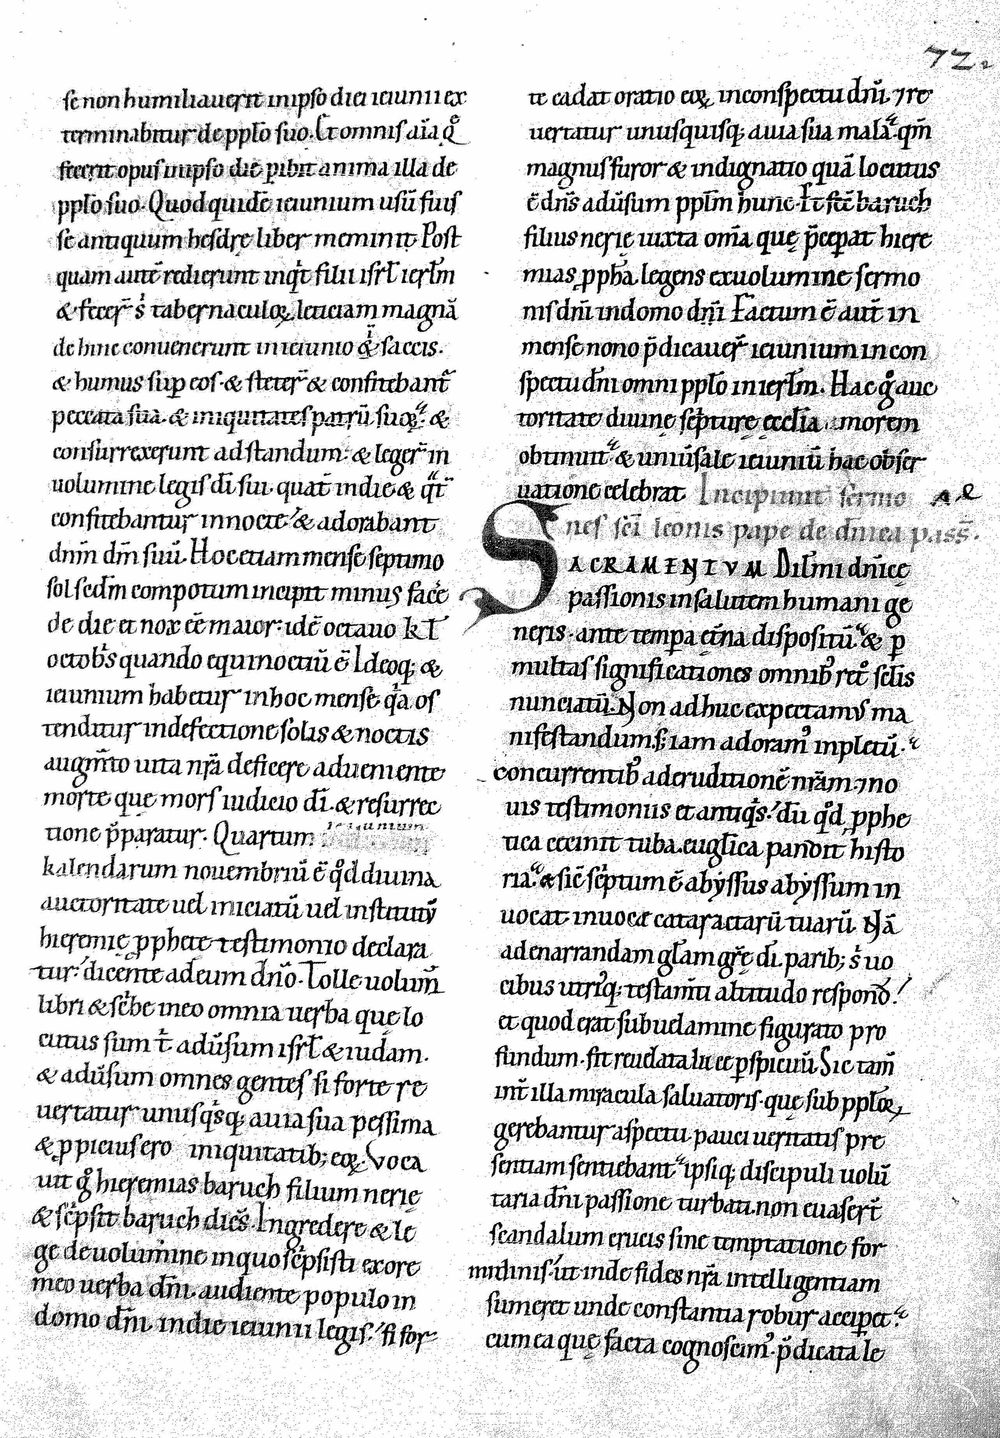 72.
se non humiliauerit inipso diei ieiunii ex
terminabitur de pplo suo. Et omnis aīa q̄
fecerit opus inipso die pibit anima illa de
pplo suo. Quod quidē ieiunium usū fuis
se antiquum hesdrę liber meminit. Post
quam autē redierunt inqt filii isrl ierlm
& fecer̄ s̄ tabernaculoꝝ leticiam magnā
de hinc conuenerunt inieiunio & saccis.
& humus sup eos. & steter̄ & confitebant
peccata sua. & iniquitates patrū suoꝝ. &
consurrexerunt adstandum. & leger̄ in
uolumine legis dī sui. quat indie & qt
confitebantur innocte. & adorabant
dnm dm suū. Hoc etiam mense septimo
sol sedm compotum incipit minus facē
de die et nox eē maior. idē octauo kl
octobs quando equinoctiū ē. Ideoq; &
ieiunium habetur inhoc mense qa os
tenditur indefectione solis & noctis
augmto uita nrā deficere adueniente
morte que mors iudicio dī. & resurrec
tione p̄paratur. Quartum ieiunium
kalendarum nouembriū ē qd diuina
auctoritate uel iniciatū uel institutū
hieremię pphete testimonio declara
tur. dicente adeum dnō. Tolle uolum̄
libri & scbe ineo omnia uerba que lo
cutus sum t̄ adūsum isrl & iudam.
& adūsum omnes gentes si forte re
uertatur unusqsq; auia sua pessima
& ppicius ero iniquitatib; eoꝝ. Voca
uit g hieremias baruch filium nerię
& scpsit baruch dices. Ingredere & le
ge de uolumine inquo scpsisti exore
meo uerba dnī. audiente populo in
domo dnī indie ieiunii legis. si for
te cadat oratio eoꝝ inconspectu dnī. 7 re
uertatur unusquisq; auia sua mala. qm̄
magnus furor & indignatio quā locutus
ē dn̄s adūsum pplm hunc. Et fec̄ baruch
filius nerię iuxta omā quę p̄cepat hiere
mias ppha legens exuolumine sermo
nis dnī indomo dnī. Factum ē aut̄ in
mense nono p̄dicauer̄ ieiunium incon
spectu dnī omni pplo inierlm. Hac g auc
toritate diuine scpture ecclīa morem
obtinuit. & uniūsale ieiuniū hac obser
uatione celebrat. Incipiunt sermo
nes sci leonis pape de dnica pass.
SACRAMENTVM Dilmi dnicę
passionis insalutem humani ge
neris. ante tempa etna dispositū. & p
multas significationes omnib; ret̄ sclis
nunciatū. Non adhuc expectam; ma
nifestandum. s; iam adoram; inpletū.
concurrentib; aderuditionē nrām. 7 no
uis testimoniis et antiqs. dū qd pphe
tica cecinit tuba. euglica pandit histo
ria. & sic scptum ē abyssus abyssum in
uocat inuoce cataractarū tuarū. Nā
adenarrandam glam grę dī. parib; s uo
cibus utriq; testamti altitudo respond.
et quod erat subuelamine figurato pro
fundum. fit reuelata luce pspicuū. Sic tam̄
int̄ illa miracula saluatoris. que sub pploꝝ
gerebantur aspectu. pauci ueritatis pre
sentiam sentiebant. ipsiq; discipuli uolū
taria dnī passione turbati. non euaser̄t
scandalum crucis sine temptatione for
midinis. ut inde fides nrā intelligentiam
sumeret unde constantia robur accipet.
cum ea que facta cognoscim;. p̄dicata le